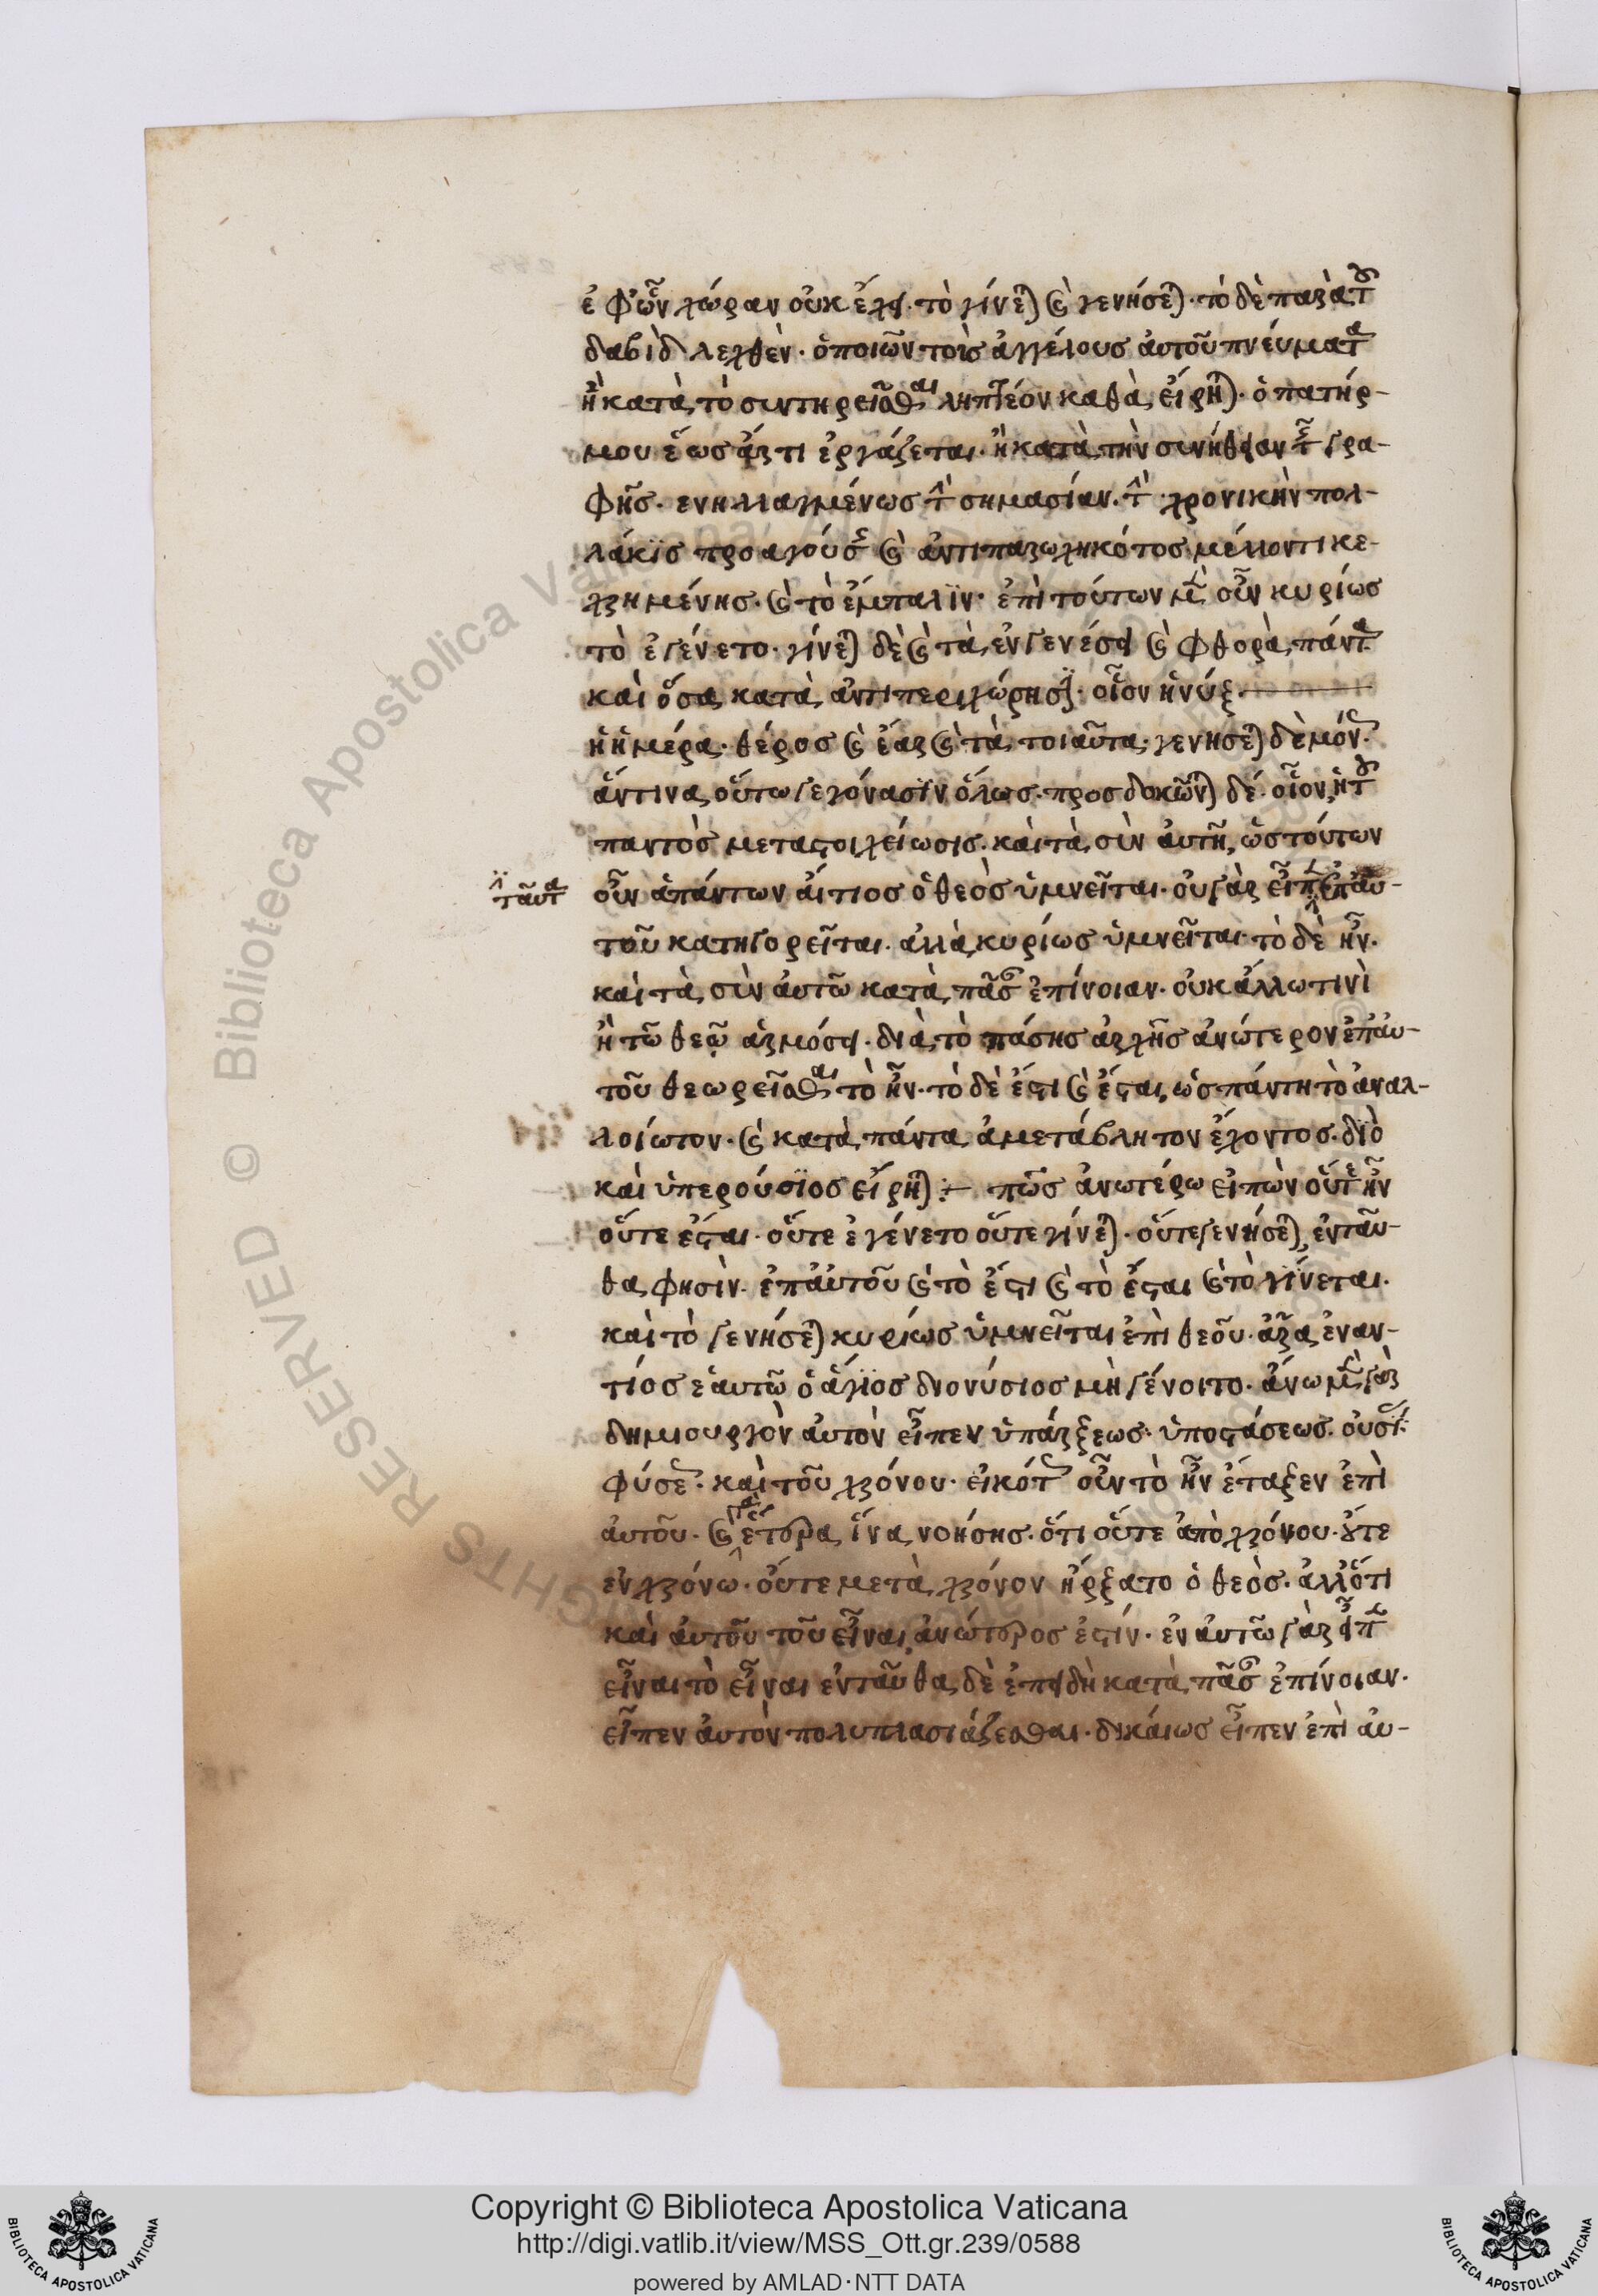 ἐφ' ὧν χώραν οὐκ ἔχει τὸ γίνεται καὶ γενήσεται· τὸ δὲ παρὰ τοῦ
δαβὶδ λεχθὲν· ὁ ποιῶν τοὺς ἀγγέλους αὐτοῦ πνεύματα
ἢ κατὰ τὸ συντηρεῖσθαι ληπτέον καθὰ εἴρηται· ὁ πατήρ-
μου ἕως ἄρτι ἐργάζεται· ἢ κατὰ τὴν συνήθειαν τῆς γρα-
φῆς· ἐνηλλαγμένως τὴν σημασίαν· τὴν χρονικὴν πολ-
λάκϊς προαγούσης καὶ ἀντιπαρωχηκότος μέλλοντι κε-
χρημένης· καὶ τὸ ἔμπαλϊν· ἐπὶ τούτων μὲν οὖν κυρίως
τὸ ἐγένετο· γίνεται δὲ καὶ τὰ ἐν γενέσει καὶ φθορὰ πάντα
καὶ ὅσα κατὰ ἀντιπεριχώρησϊν· οἷον ἡ νύξ
ἡ ἡμέρα· θέρος καὶ ἔαρ καὶ τὰ τοιαῦτα· γενήσεται δὲ μόνον
ἅντινα οὕπω γεγόνασϊν ὅλως· προσδοκῶνται δέ· οἷον ἡ τοῦ
παντὸς μεταστοιχείωσις· καὶ τὰ σὺν αὐτῆ, ὡς τούτων
ταῦτα
οὖν ἁπάντων αἴτιος ὁ θεὸς ὑμνεῖται· οὐ γὰρ εἶπεν ἐπ' αὐ-
τοῦ κατηγορεῖται· ἀλλὰ κυρίως ὑμνεῖται· τὸ δὲ ἦν·
καὶ τὰ σὺν αὐτῶ κατὰ πᾶσαν ἐπίνοιαν· οὐκ ἄλλω τινὶ
ἢ τῶ θεῷ ἁρμόσει· διὰ τὸ πάσης ἀρχῆς ἀνώτερον ἐπ' αὐ-
τοῦ θεωρεῖσθαι τὸ ἦν· τὸ δὲ ἔστι καὶ ἔσται, ὡς πάντη τὸ ἀναλ-
λοίωτον· καὶ κατὰ πάντα ἀμετάβλητον ἔχοντος· διὸ
καὶ ὑπερούσϊος εἴρηται :- πῶς ἀνωτέρω εἰπὼν οὔτε ἦν
οὔτε ἔσται· οὔτε ἐγένετο οὔτε γίνεται· οὔτε γενήσεται, ἐνταῦ-
θα φησὶν· ἐπ' αὐτοῦ καὶ τὸ ἔστι καὶ τὸ ἔσται καὶ τὸ γίνεται·
καὶ τὸ γενήσεται κυρίως ὑμνεῖται ἐπὶ θεοῦ· ἆρα ἐναν-
τίος ἑαυτῶ ὁ ἅγϊος διονύσιος μὴ γένοιτο· ἄνω μὲν γὰρ
δημιουργὸν αὐτὸν εἶπεν ὑπάρξεως· ὑποστάσεως· οὐσίας·
φύσεως· καὶ τοῦ χρόνου· εἰκότως οὖν τὸ ἦν ἔταξεν ἐπὶ
αὐτοῦ· καὶ τὰ ἕτερα ἵνα νοήσης· ὅτι οὔτε ἀπὸ χρόνου· οὔτε
ἐν χρόνω· οὔτε μετὰ χρόνον ἤρξατο ὁ θεὸς· ἀλλ' ὅτι
καὶ αὐτοῦ τοῦ εἶναι ἀνώτερος ἐστίν· ἐν αὐτῶ γὰρ εἶπεν
εἶναι τὸ εἶναι ἐνταῦθα δὲ ἐπειδὴ κατὰ πᾶσαν ἐπίνοιαν·
εἶπεν αὐτὸν πολυπλασιάζεσθαι· δικαίως εἶπεν ἐπὶ αὐ-
Copyright © Biblioteca Apostolica Vaticana
http://digi.vatlib.it/view/MSS_Ott.gr.239/0588
powered by AMLAD·NTT DATA